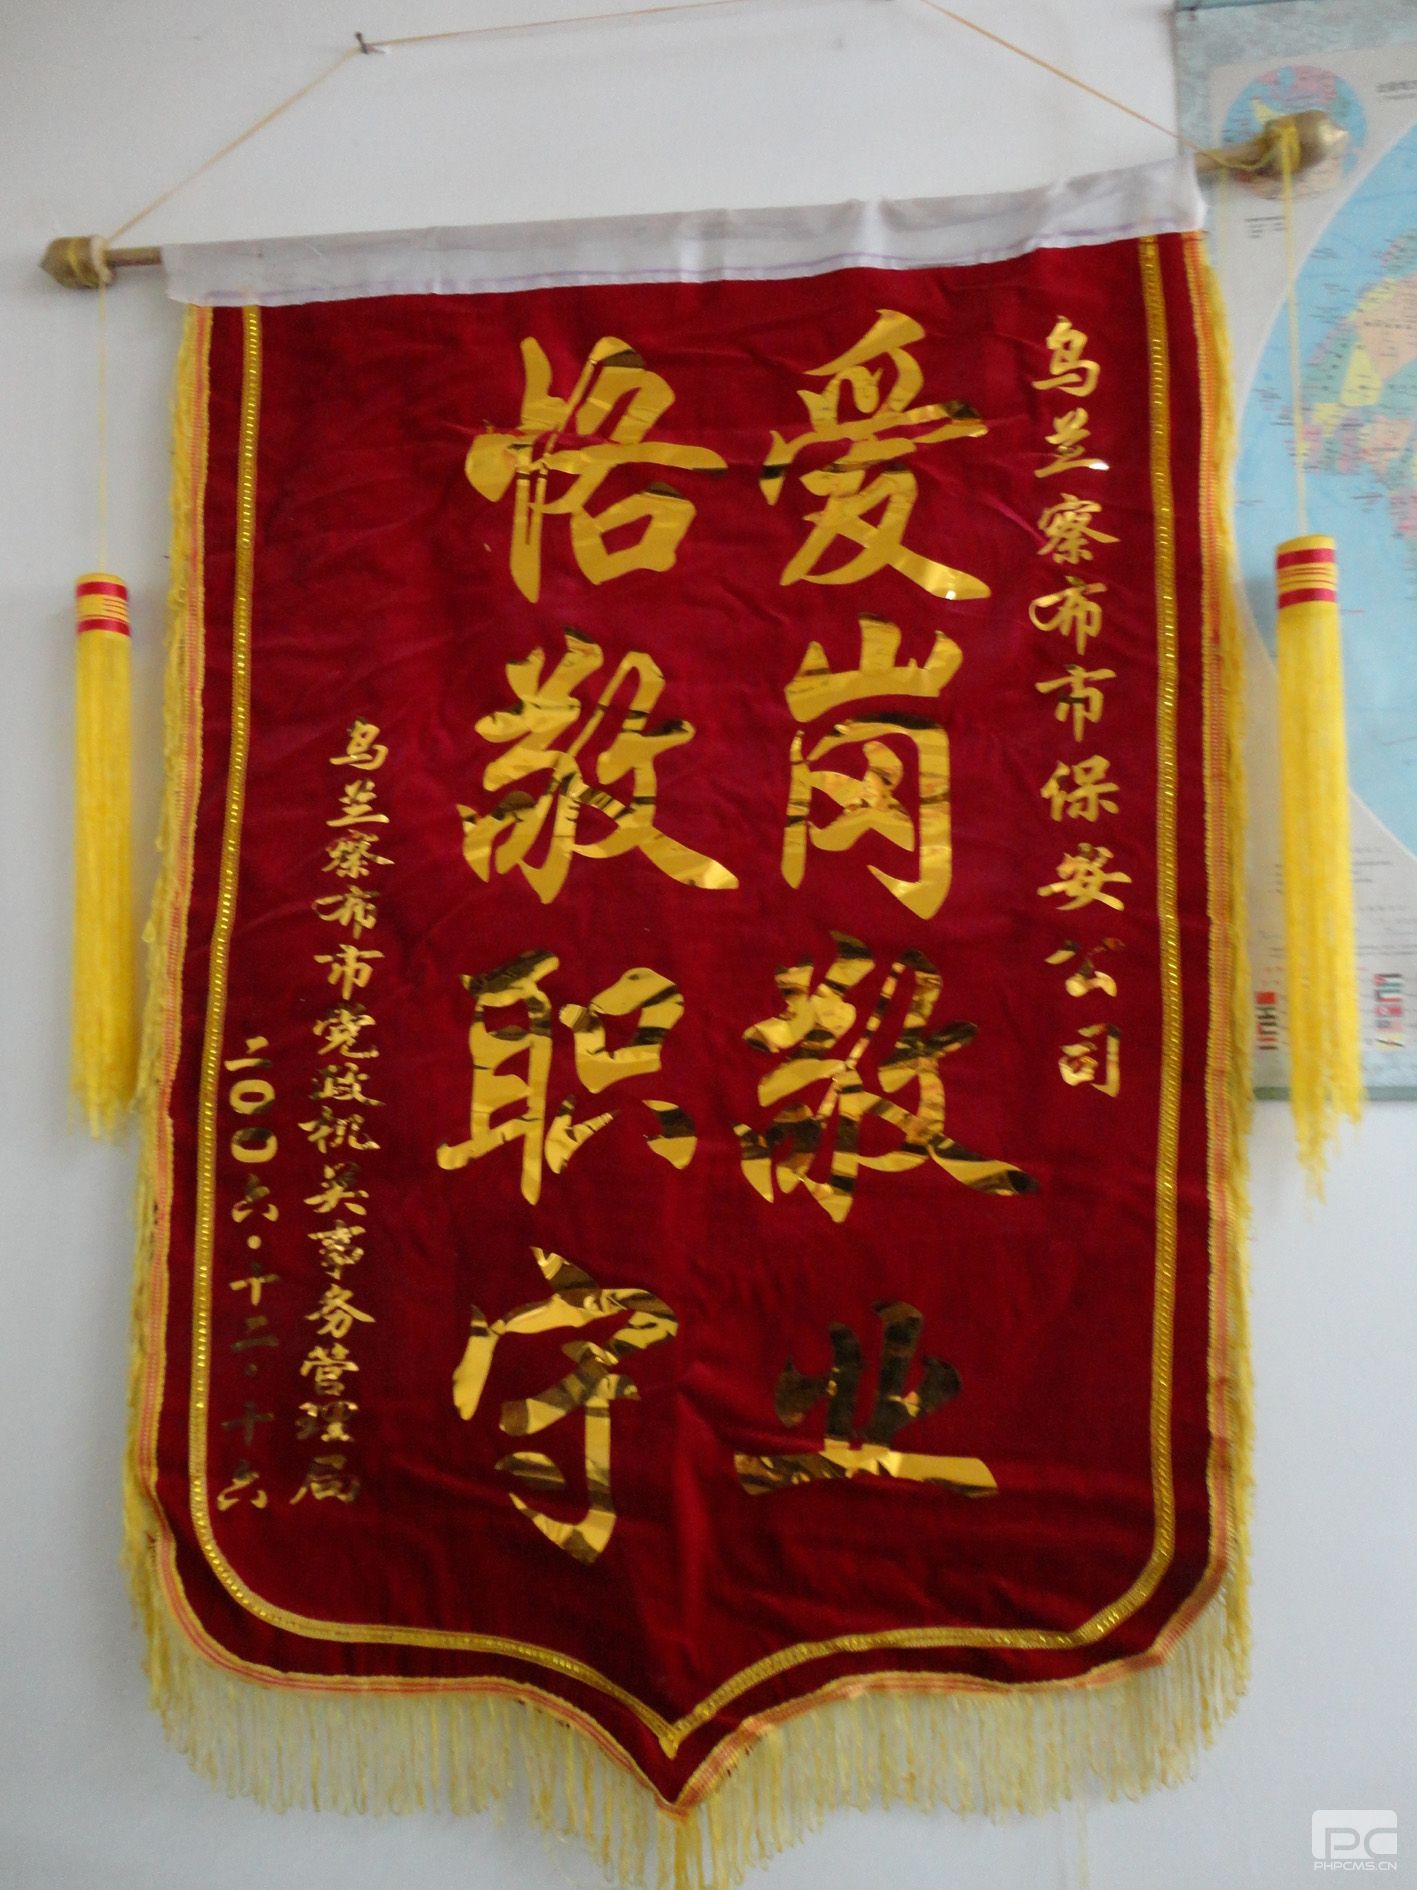 乌兰察布市保安公司
爱岗敬业
恪敬职守
乌兰察布市党政机关事务管理局
二00六·十二·十六
PHPCMS.CN